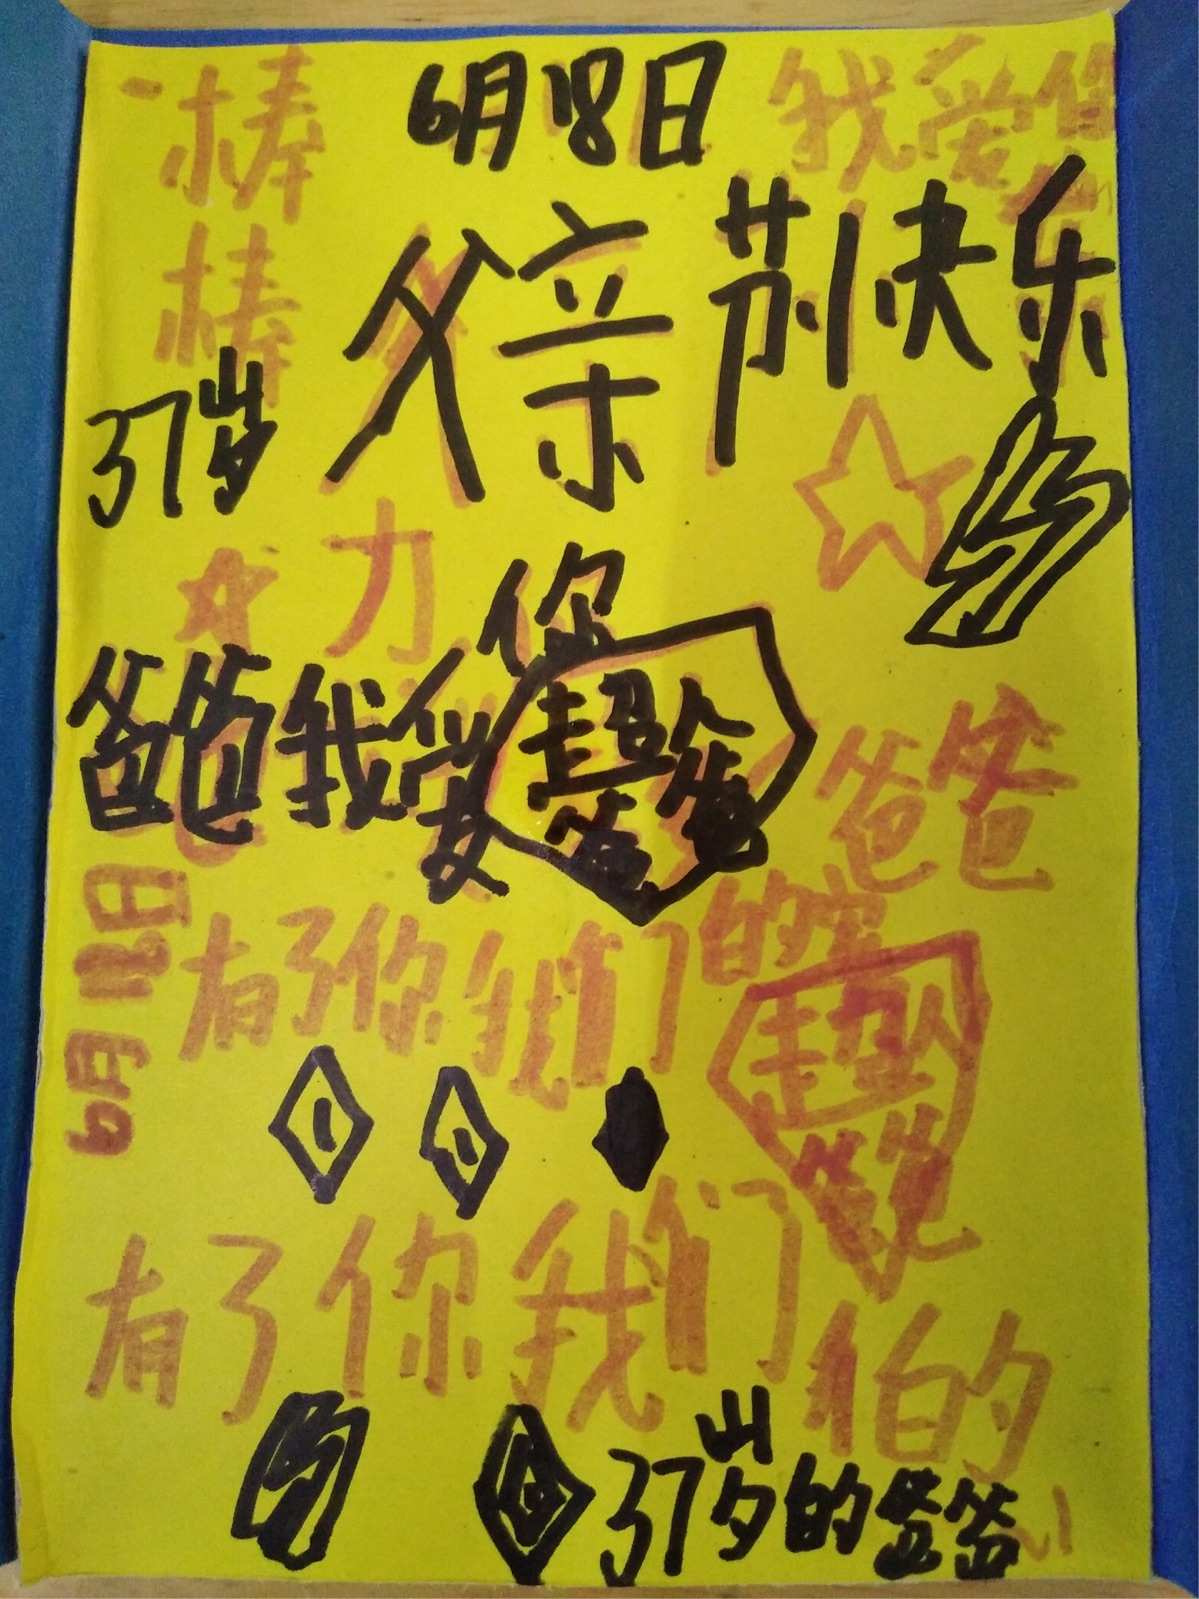 棒 6月18日 我爱你
棒 父亲节快乐
37岁
力
你
爸爸我爱
超
爸爸
爸爸
6月18日
有了你我们的
超人
爸爸
有了你我们
的
37岁的爸爸